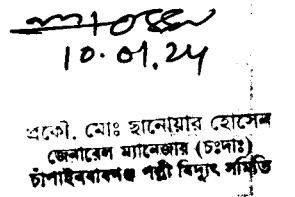 10.01.24
প্রকৌ. মোঃ ছানোয়ার হোসেন
জেনারেল ম্যানেজার (চঃদাঃ)
চাঁপাইনবাবগঞ্জ পল্লী বিদ্যুৎ সমিতি